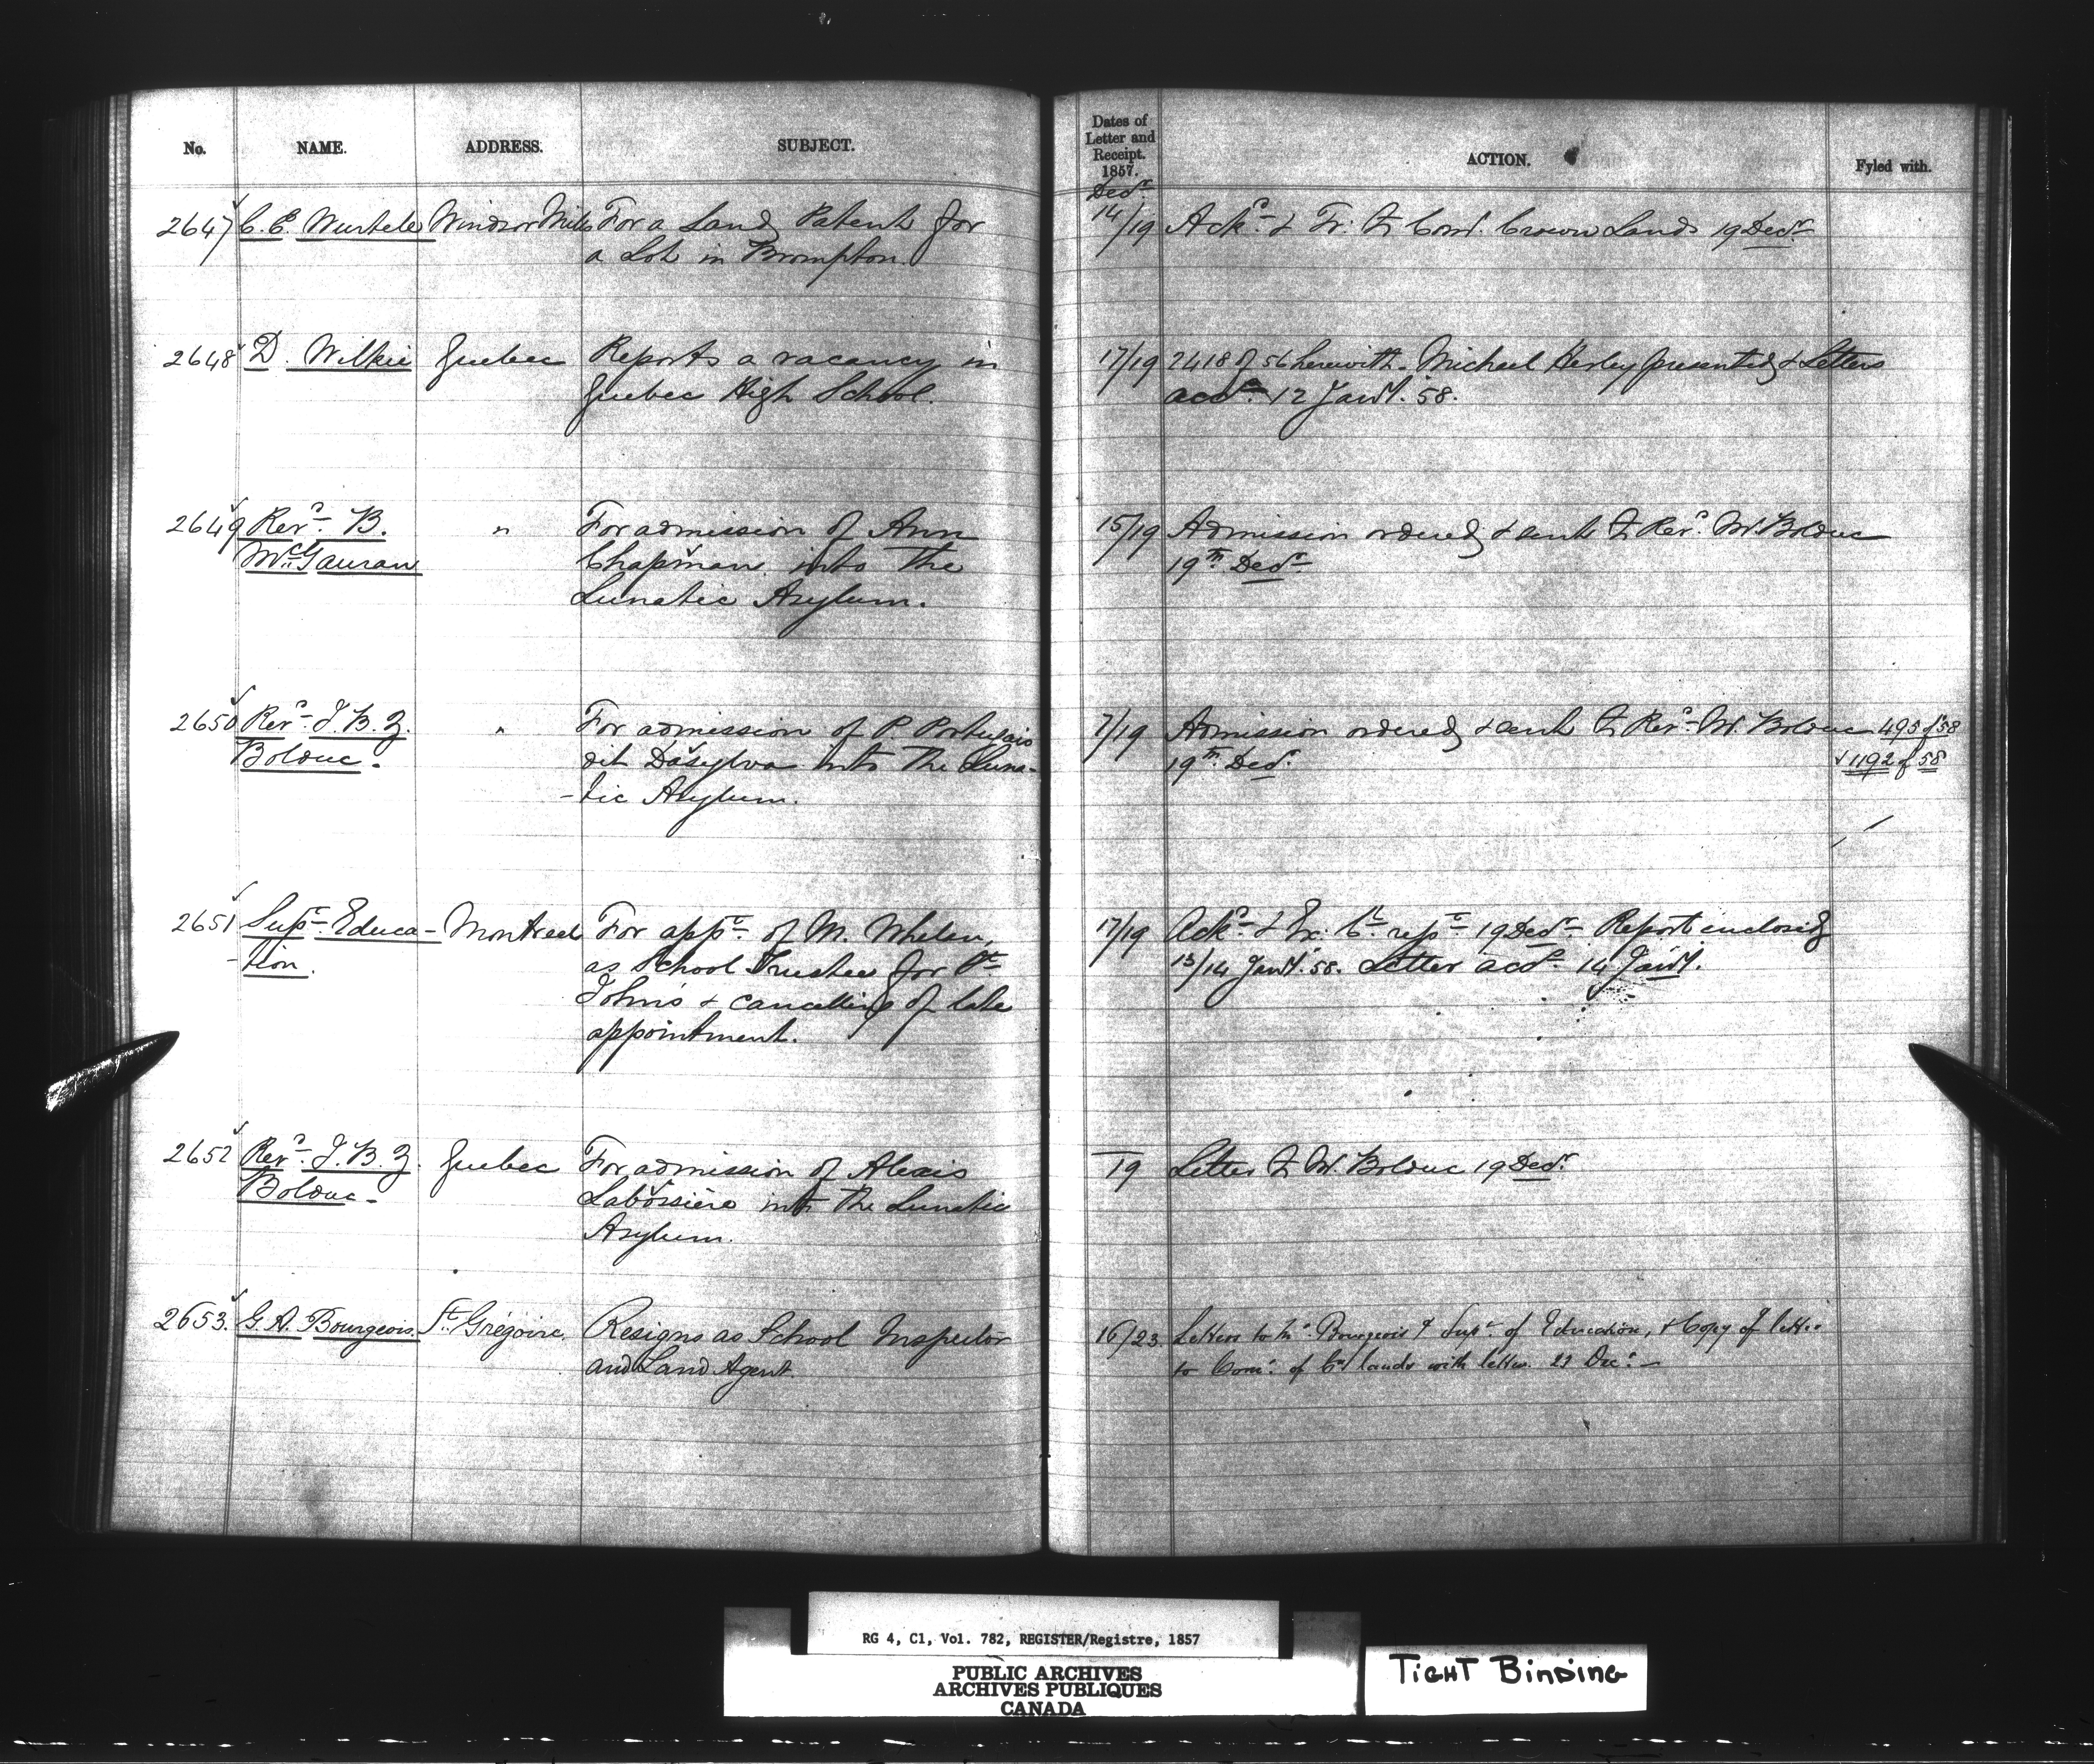 No. NAME. ADDRESS. SUBJECT.
Dates of
Letter and
Receipt.
1857.
ACTION. Fyled with.
Decr
2647 C. E. Wurtele Windsor Mills For a Land Patent for
a Lot in Brompton.
14/19 Ackd & Tr. to Comr. Crown Lands 19 Decr.
2648 D. Wilkie Quebec Reports a vacancy in
Quebec High School.
17/19 2418 of 56 herewith. Michael presented & Letters
accd. 12 Jany. 58.
2649 Revd. B.
McGauran
" For admission of Ann
Chapman into the
Lunatic Asylum.
15/19 Admission ordered & sent to Revd. M. Bolduc
19th Decr
2650 Revd. J. B. Z.
Bolduc.
" For admission of P Portugais
dit Dasylva into the Luna-
-tic Asylum.
7/19 Admission ordered & sent to Revd. M. Bolduc 495 of 58
19th Decr. & 1192 of 58
2651 Supt. Educa-
-tion.
Montreal For appt. of M. Whelan,
as School Trustee for St
John's & cancelling of late
appointment.
17/19 Ackd. & Ex. Cl rept 19 Decr. Report enclosed
13/14 Jany. 58. Letter accd. 14 Jany.
2652 Revd. J. B. Z.
Bolduc.
Quebec For admission of Alexis
Labossière into the Lunatic
Asylum.
—/19 Letter to M. Bolduc 19 Decr.
2653. G. A. Bourgeois. St. Grégoire. Resigns as School Inspector
and Land Agent.
16/23. Letters to Mr. Bourgeois & Supt. of Education, & Copy of letter
to Comr. of Cn lands with letter. 23 Decr. —
RG 4, C1, Vol. 782, REGISTER/Registre, 1857
PUBLIC ARCHIVES
ARCHIVES PUBLIQUES
CANADA
TIGHT BINDING